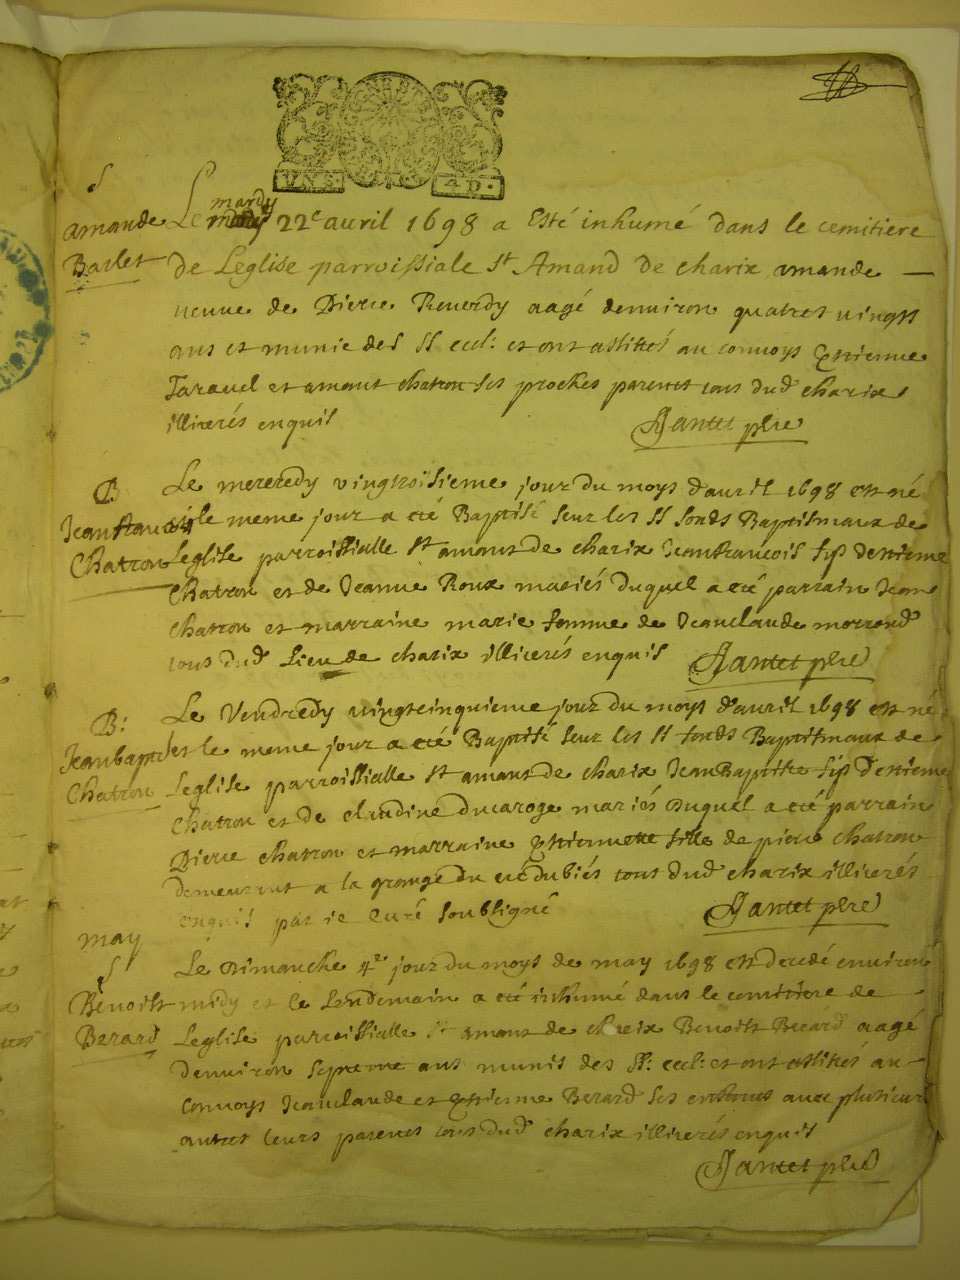 UN S. 4 D.
S
amande
Barlet
Le mardy 22e avril 1698 a Esté inhumé dans le cemitiere
de Leglise parroissiale St Amand de charix amande
veuve de Pierre Reverdy aagé denviron quatres vingts
ans et munie des SS eccl: et ont assistés au convoys Estienne
Taravel et amant chatron ses proches parents tous dud charix
illiterés enquis
Jantet pbre
B
Jeanfrancois
Chatron
Le mercredy vingtroisieme jour du moys d'avril 1698 est né
et le meme jour a eté Baptisé seur les SS fonds Baptismaux de
Leglise parroissialle St amant de charix Jeanfrancois fils destienne
Chatron et de Jeanne Roux mariés duquel a eté parrain Jean
Chatron et marraine marie femme de Jeanclaude morrond
tous dud Lieu de charix illiterés enquis Jantet pbre
B:
Jeanbaptiste
Chatron
Le Vendredy vingtcinquieme jour du moys d'avril 1698 est né
et le meme jour a eté Baptisé seur les SS fonds Baptismaux de
Leglise parroissialle St amant de charix JeanBaptiste fils d'estienne
Chatron et de claudine ducaroge mariés duquel a eté parrain
Pierre chatron et marraine Estiennette fille de pierre chatron
demeurant a la grange du tous dud charix illiterés
enquis par je Curé soubsigné Jantet pbre
may
S
Benoist
Berard
Le Dimanche 4e jour du moys de may 1698 est decedé environ
midy et le Lendemain a eté inhumé dans le cemitiere de
Leglise paroissialle St amant de charix Benoist Berard aagé
denviron septente ans munis des SS: eccl: et ont assistés au
convoys Jeanclaude et Estienne Berard ses enfants avec plusieurs
autres leurs parents tous dud charix illiterés enquis
Jantet pbre